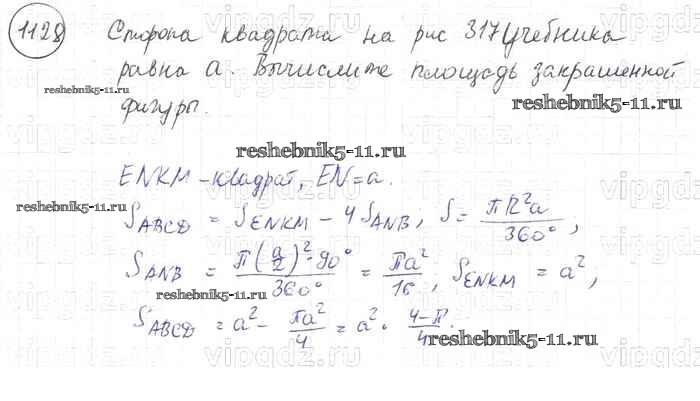 1128 Сторона квадрата на рис 317 учебника
равна а. Вычислите площадь закрашенной
фигуры.
reshebnik5-11.ru
reshebnik5-11.ru
reshebnik5-11.ru
ENKM - квадрат, EN = a.
reshebnik5-11.ru
S_ABCD = S_ENKM - 4 S_ANB, S = πR²a/360°;
S_ANB = π(a/2)²·90°/360° = πa²/16; S_ENKM = a²,
reshebnik5-11.ru
S_ABCD = a² - πa²/4 = a² · 4-π/4.
reshebnik5-11.ru
vipgdz.com